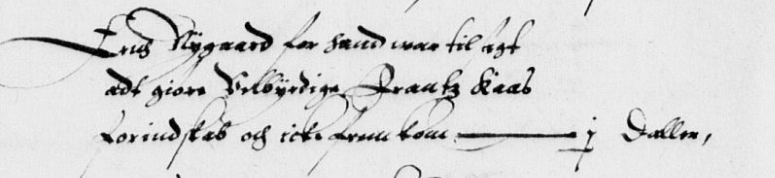 Erich Nygaard for hand war til sagt
adt giøre Velbÿrdige Frantz Kaas
forindskab och icke frem kom ——— j Daller,